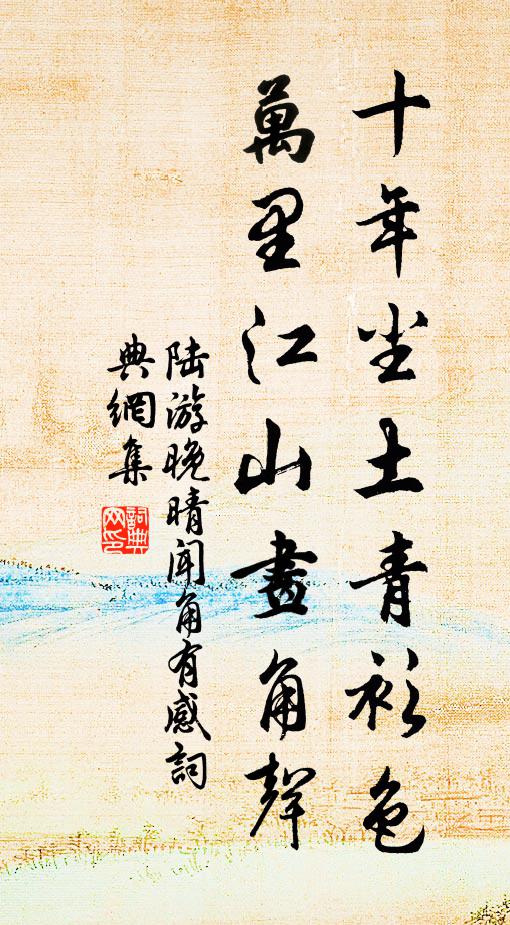 十年尘土青衫色
萬里江山畫角聲
陆游晚晴闻角有感詞
典網集
詞典网印